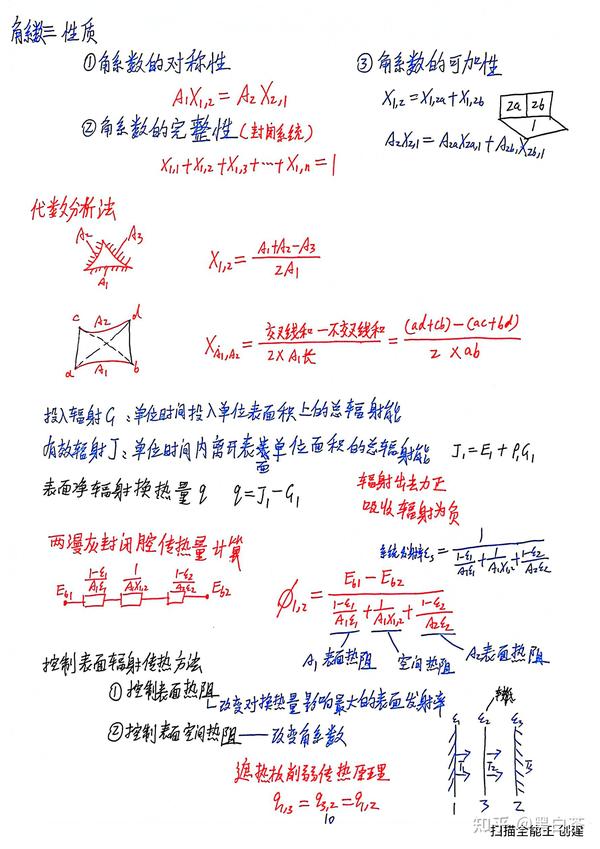 角系数三性质
①角系数的对称性
A₁X₁,₂ = A₂X₂,₁
②角系数的完整性(封闭系统)
X₁,₁+X₁,₂+X₁,₃+…+X₁,n=1
③角系数的可加性
X₁,₂=X₁,₂a+X₁,₂b
2a 2b
1
A₂X₂,₁=A₂aX₂a,₁+A₂b,X₂b,₁
代数分析法
A₂ A₃
A₁
X₁,₂ = (A₁+A₂-A₃)/(2A₁)
c A₂ d
a A₁ b
X_A₁,A₂ = (交叉线和-不交叉线和)/(2×A₁长) = ((ad+cb)-(ac+bd))/(2×ab)
投入辐射G:单位时间投入单位表面积上的总辐射能
有效辐射J:单位时间内离开表面单位面积的总辐射能 J₁=E₁+ρ₁G₁
表面净辐射换热量q q=J₁-G₁
辐射出去为正
吸收辐射为负
两漫灰封闭腔传热量计算
系统发射率εs = 1/((1-ε₁)/(A₁ε₁)+1/(A₁X₁,₂)+(1-ε₂)/(A₂ε₂))
Eb1 (1-ε₁)/(A₁ε₁) 1/(A₁X₁,₂) (1-ε₂)/(A₂ε₂) Eb2
ϕ₁,₂ = (Eb1-Eb2)/((1-ε₁)/(A₁ε₁)+1/(A₁X₁,₂)+(1-ε₂)/(A₂ε₂))
A₁表面热阻 空间热阻 A₂表面热阻
控制表面辐射传热方法
①控制表面热阻
改变对换热量影响最大的表面发射率
②控制表面空间热阻——改变角系数
遮热板削弱传热原理
q₁,₃=q₃,₂=q₁,₂
ε₁ ε₂ ε₃
T₁ T₂ T₃
1 3 2
10
知乎 @黑白茶
扫描全能王 创建